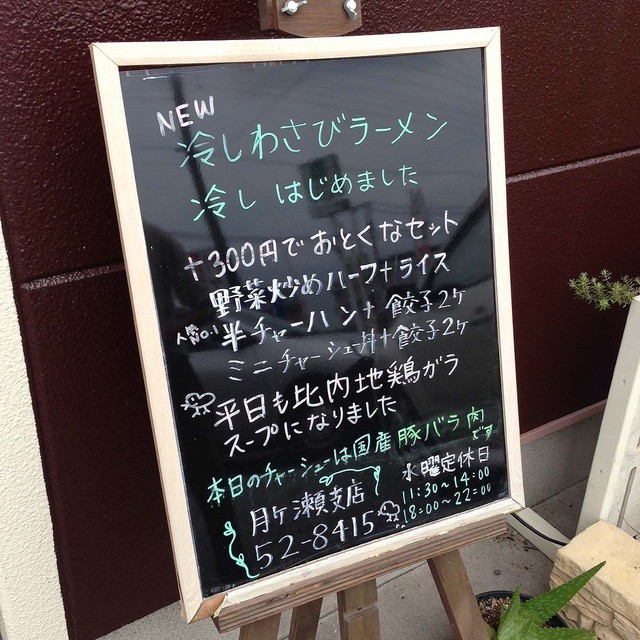 NEW
冷しわさびラーメン
冷し はじめました
+300円でおとくなセット
野菜炒めハーフ+ライス
人気No.1 半チャーハン+餃子2ケ
ミニチャーシュー丼+餃子2ケ
平日も比内地鶏ガラ
スープになりました
本日のチャーシューは国産豚バラ肉です
水曜定休日
11:30~14:00
18:00~22:00
月ヶ瀬支店
52-8415